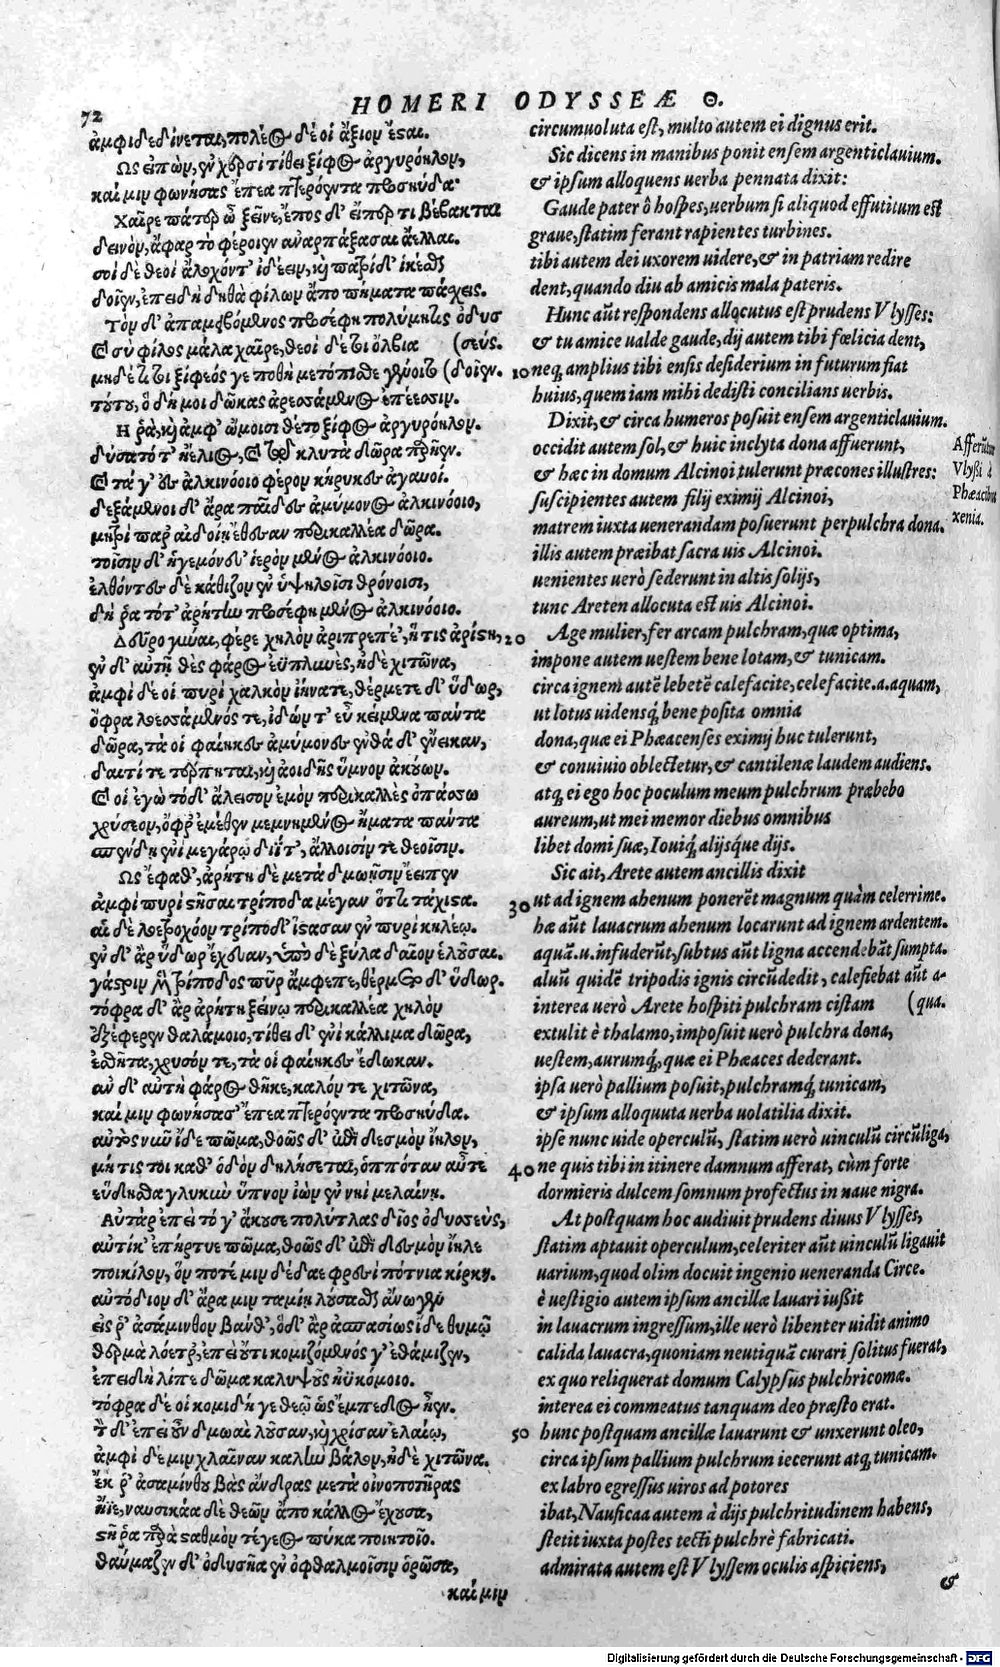 72
HOMERI ODYSSEÆ Θ.
ἀμφιδεδίνεται, πολέος δέ οἱ ἄξιον ἔσται.
Ως εἰπὼν, ἐν χερσὶ τίθει ξίφος ἀργυρόηλον,
καί μιν φωνήσας ἔπεα πτερόεντα προσηύδα·
Χαῖρε πάτερ ὦ ξεῖνε, ἔπος δ' εἴπερ τι βέβακται
δεινὸν, ἄφαρ τὸ φέροιεν ἀναρπάξασαι ἄελλαι.
σοὶ δὲ θεοὶ ἄλοχόντ' ἰδέειν, καὶ πατρίδ' ἱκέσθαι
δοῖεν, ἐπειδὴ δηθὰ φίλων ἄπο πήματα πάσχεις.
Τὸν δ' ἀπαμειβόμενος προσέφη πολύμητις ὀδυσ
καὶ σὺ φίλος μάλα χαῖρε, θεοὶ δέ τοι ὄλβια (σεύς.
μηδέ τι τοι ξίφεός γε ποθὴ μετόπισθε γένοιτο (δοῖεν.
τούτου, ὃ δή μοι δῶκας ἀρεσσάμενος ἐπέεσσιν.
Η ῥὰ, καὶ ἀμφ' ὤμοισι θέτο ξίφος ἀργυρόηλον.
δύσατό τ' ἠέλιος, καὶ τῷ κλυτὰ δῶρα παρῆεν.
καὶ τά γ' ἐς ἀλκινόοιο φέρον κήρυκες ἀγαυοί.
δεξάμενοι δ' ἄρα παῖδες ἀμύμονος ἀλκινόοιο,
μητρὶ παρ' αἰδοίῃ ἔθεσαν περικαλλέα δῶρα.
τοῖσιν δ' ἡγεμόνευ' ἱερὸν μένος ἀλκινόοιο.
ἐλθόντες δὲ κάθιζον ἐν ὑψηλοῖσι θρόνοισι,
δή ῥα τότ' ἀρήτην προσέφη μένος ἀλκινόοιο.
Δεῦρο γύναι, φέρε χηλὸν ἀριπρεπέ', ἥτις ἀρίστη,
ἐν δ' αὐτῇ θὲς φάρος ἐϋπλυνὲς, ἠδὲ χιτῶνα,
ἀμφὶ δέ οἱ πυρὶ χαλκὸν ἰήνατε, θέρμετε δ' ὕδωρ,
ὄφρα λοεσσάμενός τε, ἰδών τ' εὖ κείμενα πάντα
δῶρα, τά οἱ φαίηκες ἀμύμονες ἐνθάδ' ἔνεικαν,
δαιτί τε τέρπηται, καὶ ἀοιδῆς ὕμνον ἀκούων.
καί οἱ ἐγὼ τόδ' ἄλεισον ἐμὸν περικαλλὲς ὀπάσσω
χρύσεον, ὄφρ' ἐμέθεν μεμνημένος ἤματα πάντα
σπένδῃ ἐνὶ μεγάρῳ διΐ τ', ἄλλοισίν τε θεοῖσιν.
Ως ἔφαθ', ἀρήτη δὲ μετὰ δμωῇσιν ἔειπεν
ἀμφὶ πυρὶ στῆσαι τρίποδα μέγαν ὅττι τάχιστα.
αἱ δὲ λοετροχόον τρίποδ' ἵστασαν ἐν πυρὶ κηλέῳ.
ἐν δ' ἄρ' ὕδωρ ἔχευαν, ὑπὸ δὲ ξύλα δαῖον ἑλοῦσαι.
γάστρην μὲν τρίποδος πῦρ ἄμφεπε, θέρμετο δ' ὕδωρ.
τόφρα δ' ἄρ' ἀρήτη ξείνῳ περικαλλέα χηλὸν
ἐξέφερεν θαλάμοιο, τίθει δ' ἐνὶ κάλλιμα δῶρα,
ἐσθῆτα, χρυσόν τε, τά οἱ φαίηκες ἔδωκαν.
αν δ' αὐτὴ φάρος θῆκε, καλόν τε χιτῶνα,
καί μιν φωνήσασ' ἔπεα πτερόεντα προσηύδα.
αὐτὸς νῦν ἴδε πῶμα, θοῶς δ' ἐπὶ δεσμὸν ἴηλον,
μή τις τοι καθ' ὁδὸν δηλήσεται, ὁππόταν αὖτε
εὕδησθα γλυκὺν ὕπνον ἰὼν ἐν νηῒ μελαίνῃ.
Αὐτὰρ ἐπεὶ τό γ' ἄκουσε πολύτλας δῖος ὀδυσσεὺς,
αὐτίκ' ἐπήρτυε πῶμα, θοῶς δ' ἐπὶ δεσμὸν ἴηλε
ποικίλον, ὅν ποτέ μιν δέδαε φρεσὶ πότνια κίρκη.
αὐτόδιον δ' ἄρα μιν ταμίη λούσασθαι ἀνώγει
ἐς ῥ' ἀσάμινθον βάνθ', ὁ δ' ἄρ' ἀσπασίως ἴδε θυμῷ
θερμὰ λόετρ', ἐπεὶ οὔτι κομιζόμενός γ' ἐθάμιζεν,
ἐπειδὴ λίπε δῶμα καλυψοῦς ἠϋκόμοιο.
τόφρα δέ οἱ κομιδή γε θεῷ ὣς ἔμπεδος ἦεν.
τὸν δ' ἐπεὶ οὖν δμωαὶ λοῦσαν, καὶ χρῖσαν ἐλαίῳ,
ἀμφὶ δέ μιν χλαῖναν καλὴν βάλον, ἠδὲ χιτῶνα.
ἔκ ῥ' ἀσαμίνθου βὰς ἄνδρας μετὰ οἰνοποτῆρας
ἤϊε, ναυσικάα δὲ θεῶν ἄπο κάλλος ἔχουσα,
στῆ ῥα παρὰ σταθμὸν τέγεος πύκα ποιητοῖο.
θαύμαζεν δ' ὀδυσῆα ἐν ὀφθαλμοῖσιν ὁρῶσα,
καί μιν
circumuoluta est, multo autem ei dignus erit.
Sic dicens in manibus ponit ensem argenticlauium.
& ipsum alloquens uerba pennata dixit:
Gaude pater ô hospes, uerbum si aliquod effutitum est
graue, statim ferant rapientes turbines.
tibi autem dei uxorem uidere, & in patriam redire
dent, quando diu ab amicis mala pateris.
Hunc aūt respondens allocutus est prudens Vlysses:
& tu amice ualde gaude, dij autem tibi fœlicia dent,
10 neq; amplius tibi ensis desiderium in futurum fiat
huius, quem iam mihi dedisti concilians uerbis.
Dixit, & circa humeros posuit ensem argenticlauium.
occidit autem sol, & huic inclyta dona affuerunt,
& hæc in domum Alcinoi tulerunt præcones illustres:
suscipientes autem filij eximij Alcinoi,
matrem iuxta uenerandam posuerunt perpulchra dona.
illis autem præibat sacra uis Alcinoi.
uenientes uerò sederunt in altis solijs,
tunc Areten allocuta est uis Alcinoi.
20 Age mulier, fer arcam pulchram, quæ optima,
impone autem uestem bene lotam, & tunicam.
circa ignem autē lebetē calefacite, celefacite.a.aquam,
ut lotus uidensq́; bene posita omnia
dona, quæ ei Phæacenses eximij huc tulerunt,
& conuiuio oblectetur, & cantilenæ laudem audiens.
atq; ei ego hoc poculum meum pulchrum præbebo
aureum, ut mei memor diebus omnibus
libet domi suæ, Iouiq́; alijsq́ue dijs.
Sic ait, Arete autem ancillis dixit
30 ut ad ignem ahenum ponerēt magnum quàm celerrime.
hæ aūt lauacrum ahenum locarunt ad ignem ardentem.
aquā.u.infuderūt, subtus aūt ligna accendebāt sumpta.
aluū quidē tripodis ignis circūdedit, calefiebat aūt a-
interea uerò Arete hospiti pulchram cistam (qua.
extulit è thalamo, imposuit uerò pulchra dona,
uestem, aurumq́;, quæ ei Phæaces dederant.
ipsa uerò pallium posuit, pulchramq́; tunicam,
& ipsum alloquuta uerba uolatilia dixit.
ipse nunc uide operculū, statim uerò uinculū circūliga,
40 ne quis tibi in itinere damnum afferat, cùm forte
dormieris dulcem somnum profectus in naue nigra.
At postquam hoc audiuit prudens diuus Vlysses,
statim aptauit operculum, celeriter aūt uinculū ligauit
uarium, quod olim docuit ingenio ueneranda Circe.
è uestigio autem ipsum ancillæ lauari iußit
in lauacrum ingressum, ille uerò libenter uidit animo
calida lauacra, quoniam neutiquā curari solitus fuerat,
ex quo reliquerat domum Calypsus pulchricomæ.
interea ei commeatus tanquam deo præsto erat.
50 hunc postquam ancillæ lauarunt & unxerunt oleo,
circa ipsum pallium pulchrum iecerunt atq; tunicam.
ex labro egressus uiros ad potores
ibat, Nausicaa autem à dijs pulchritudinem habens,
stetit iuxta postes tecti pulchrè fabricati.
admirata autem est Vlyssem oculis aspiciens,
&
Afferūtur
Vlyßi à
Phæacibus
xenia.
Digitalisierung gefördert durch die Deutsche Forschungsgemeinschaft - DFG